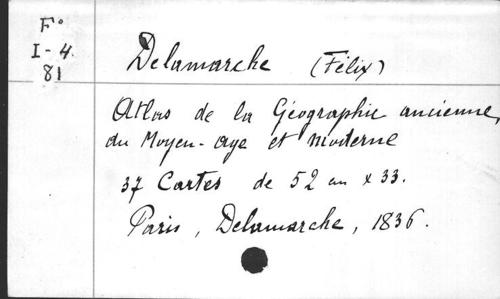 F°
I-4.
81
Delamarche (Félix)
Atlas de la Géographie ancienne,
du Moyen-age et moderne
37 Cartes de 52 cm x 33.
Paris, Delamarche, 1836.